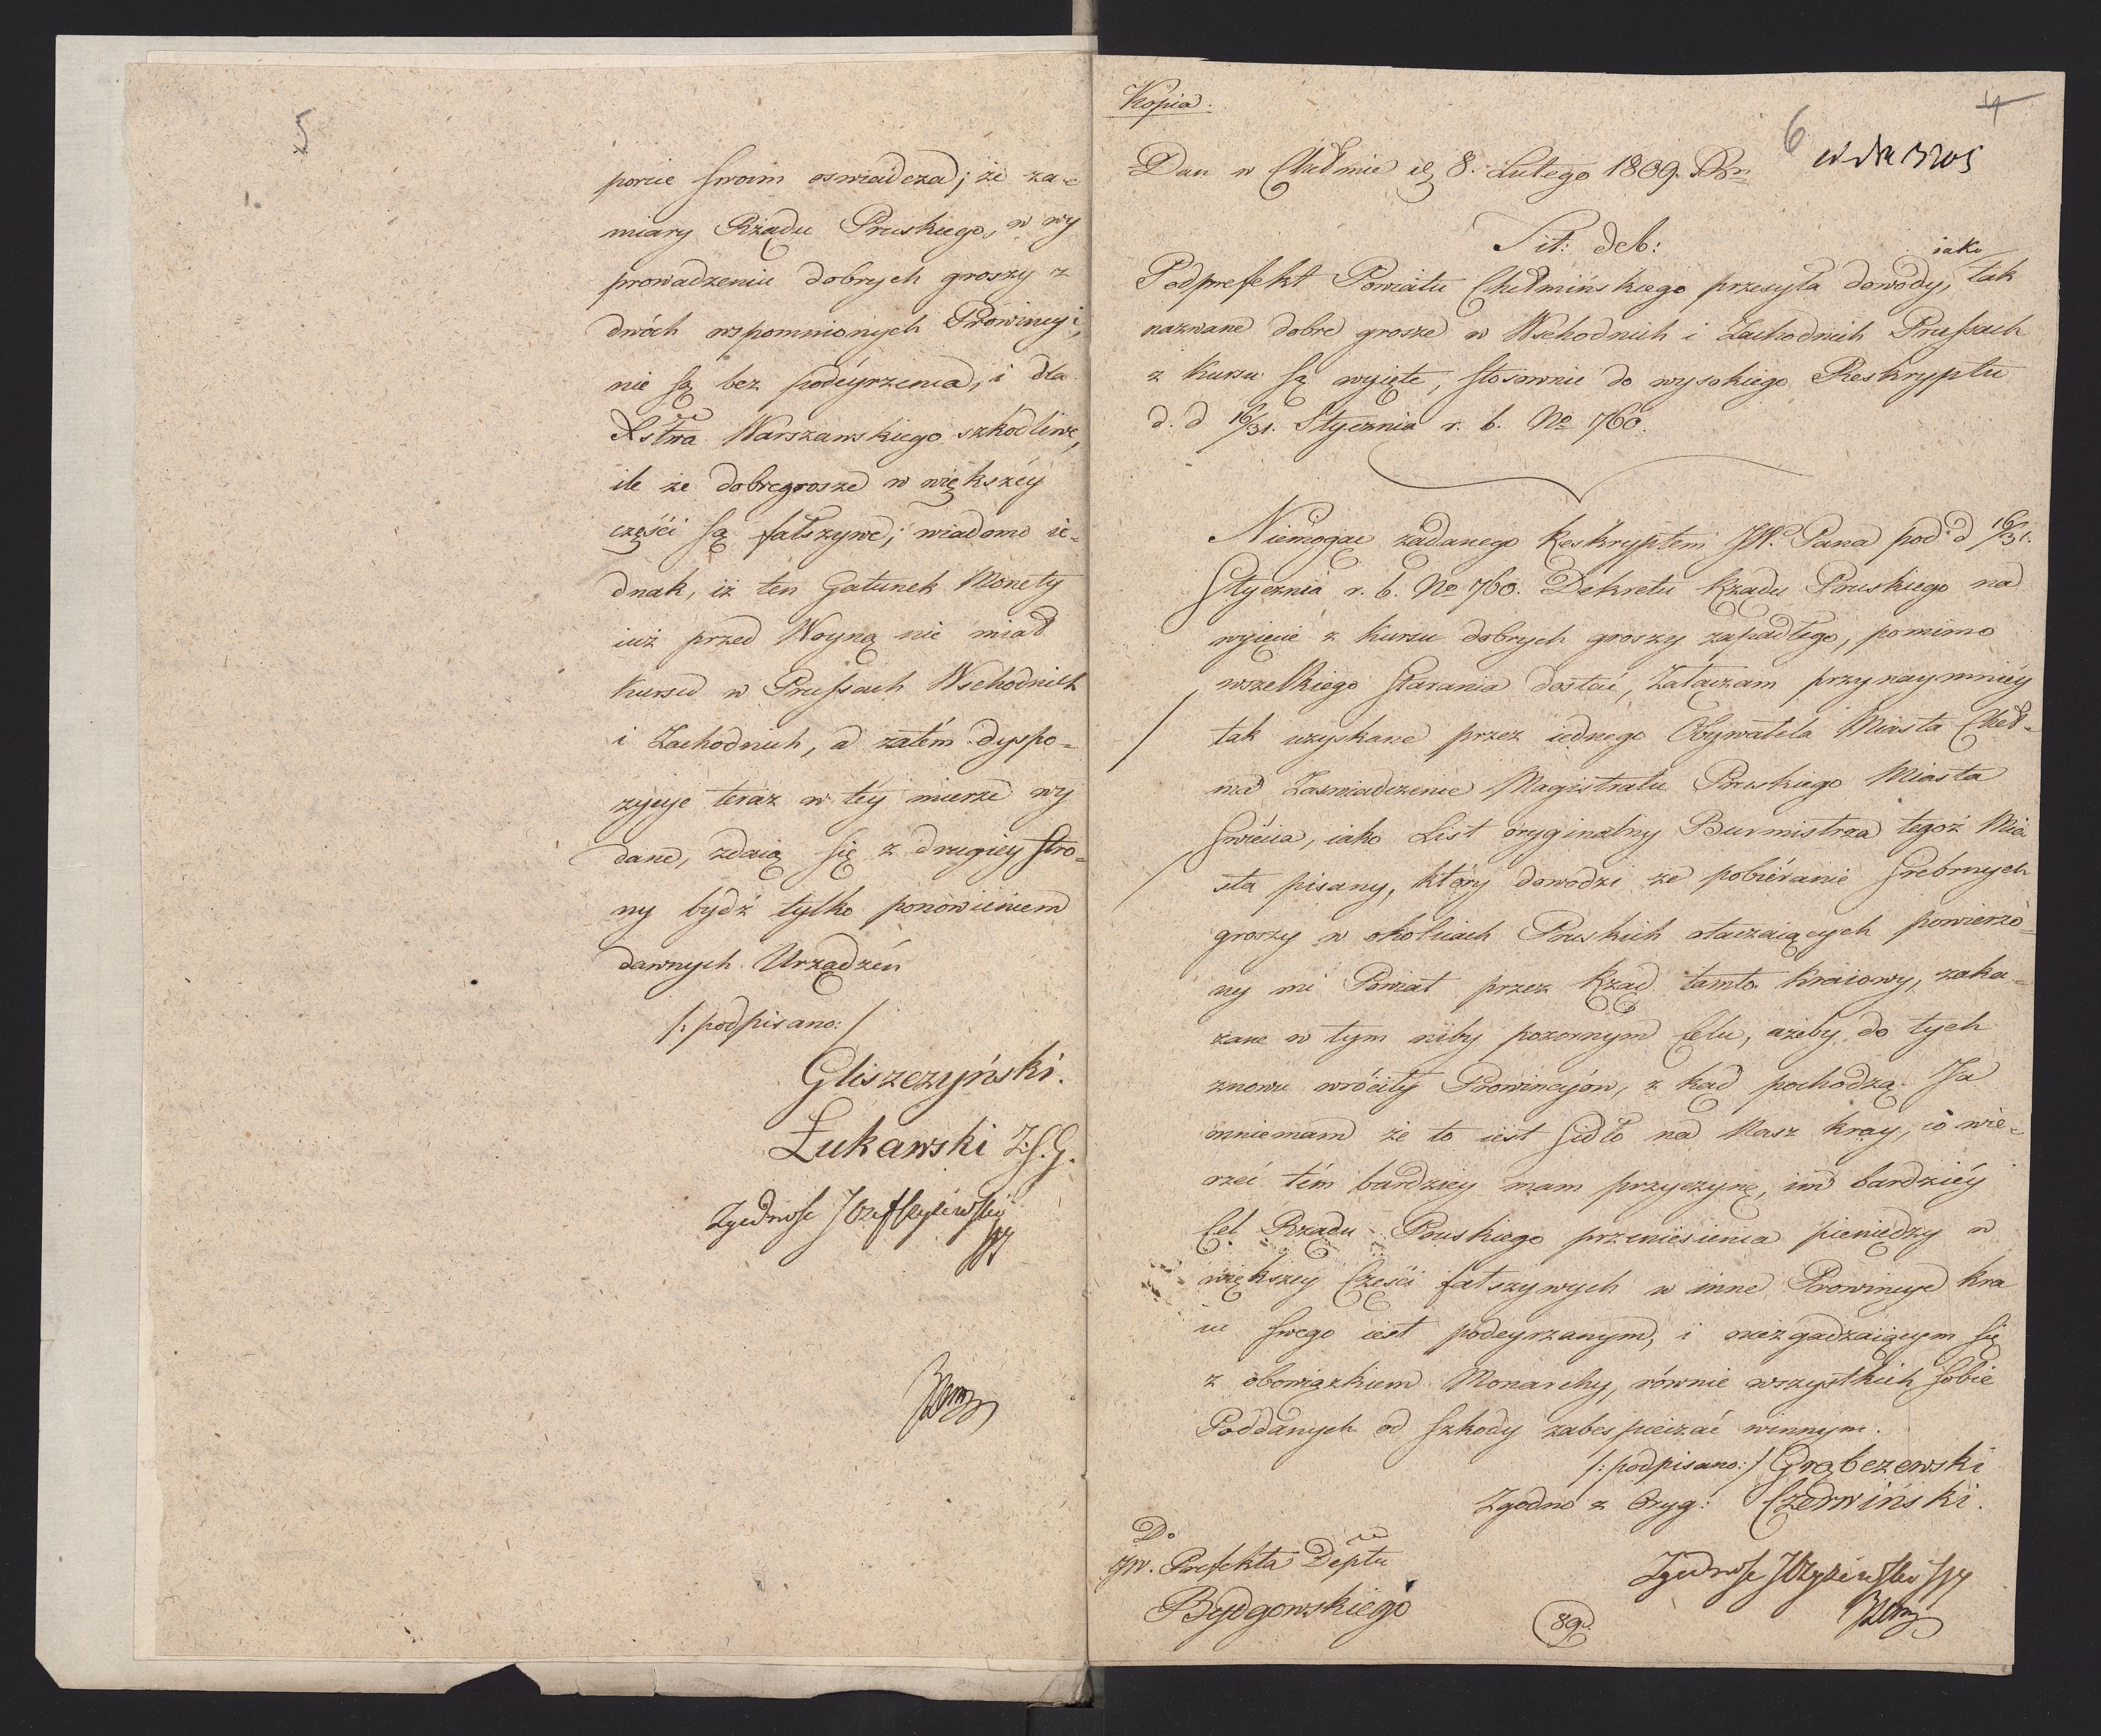 5
porcie swoim oswiadcza; że za=
miary Rządu Pruskiego, w wy
prowadzeniu dobrych groszy z
dwóch wspomnionych Prowincyi,
nie są bez podéyrzenia, i dla
Xstwa Warszawskiego szkodliwe,
ile że dobregrosze w większéy
części są fałszywe; wiadomo ie=
dnak, iż ten Gatunek Monety
iuż przed Woyną nie miał
kursu w Prussach Wschodnich
i Zachodnich, a zatém dyspo=
zycye teraz w téy mierze wy
dane, zdaią się z drugiéy stro=
ny bydź tylko ponowieniem
dawnych Urządzeń
/: podpisano: /
Gliszczyński.
Łukawski Z.S.G.
Kopia.
6
4
Dan w Chełmie d. 8. Lutego 1809. Rn
Tit: deb:
Podprefekt Powiatu Chełmińskiego przesyła dowody, iako tak
nazwane dobre grosze w Wschodnich i Zachodnich Prussach
z kursu są wyięte, stosownie do wysokiego Reskryptu
d. d 16/31. Stycznia r. b. No 760.
Niemogąc żądanego Reskryptem JW. Pana pod d 16/31.
Stycznia r. b. No 760. Dekretu Rządu Pruskiego na
wyięcie z kursu dobrych groszy zapadłego, pomimo
wszelkiego starania dostać, Załączam przynaymniéy
tak uzyskane przez iednego Obywatela Miasta Cheł=
ma Zaswiadczenie Magistratu Pruskiego Miasta
Swiecia, iako List oryginalny Burmistrza tegoż Mia
sta pisany, który dowodzi że pobiéranie srebrnych
groszy w okolicach Pruskich otaczaiących powierzo=
ny mi Powiat przez Rząd tamto kraiowy, zaka=
zane w tym niby pozornym Celu, ażeby do tych
znowu wróciły Prowincyów, z kąd pochodzą. Ja
mniemam że to iest sidło na Nasz kray, co wie=
rzeć tém bardziéy mam przyczynę, im bardziéy
Cel Rządu Pruskiego przeniesienia pieniędzy w
większey Części fałszywych w inne Prowincye kra
iu swego iest podeyrzanym, i niezgadzaiącym się
z obowiązkiem Monarchy, równie wszystkich sobie
Poddanych od szkody zabespieczać winnym.
/: podpisano: / Grąbczewski
Zgodno z Oryg: Czerwiński.
Do
JW. Prefekta Deptu
Bydgowskiego
89.